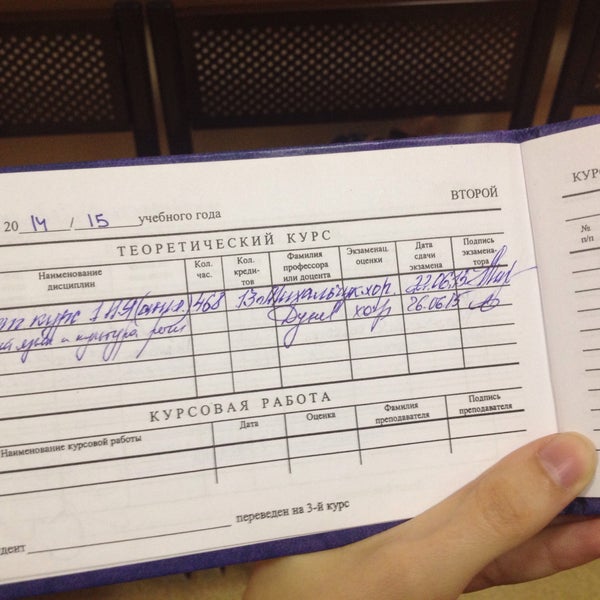 20 14 / 15 учебного года
ВТОРОЙ
ТЕОРЕТИЧЕСКИЙ КУРС
Наименование дисциплин
Кол. час.
Кол. креди-тов
Фамилия профессора или доцента
Экзаменац. оценки
Дата сдачи экзамена
Подпись экзамена-тора
курс 1 ИЯ (англ.) 468 13 Михальчук хор. 22.06.15
и культура хор 26.06.15
КУРСОВАЯ РАБОТА
Наименование курсовой работы
Дата
Оценка
Фамилия преподавателя
Подпись преподавателя
дент переведен на 3-й курс
КУРС
№ п/п